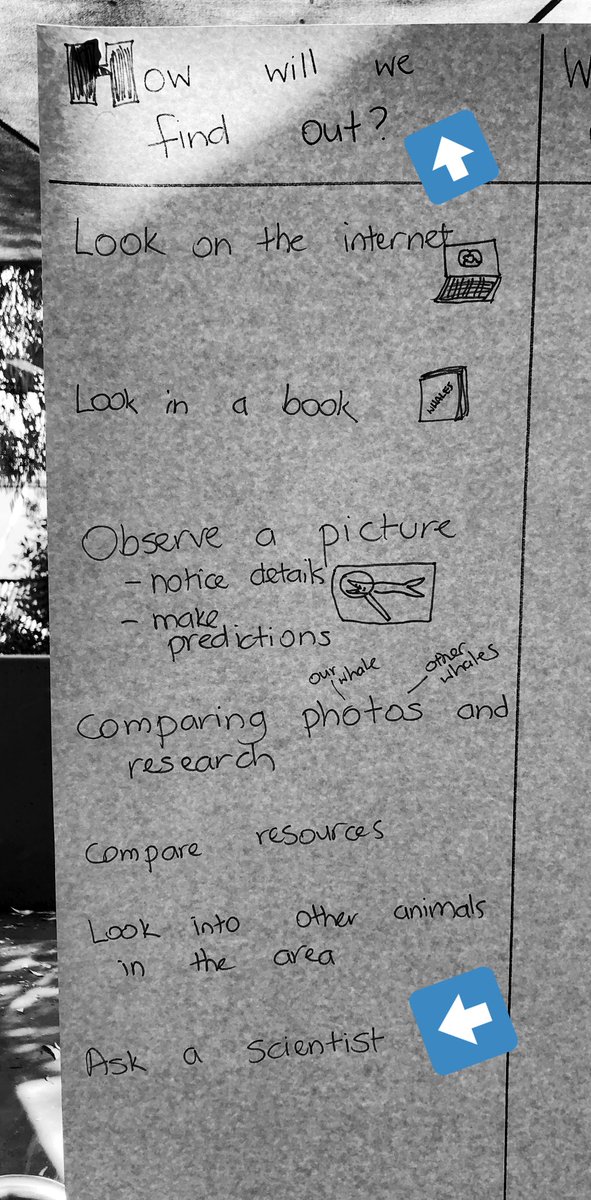 How will we
find out?
W
Look on the internet
Look in a book
WHALES
Observe a picture
- notice details
- make
predictions
our whale
other whales
Comparing photos and
research
Compare resources
Look into other animals
in the area
Ask a scientist